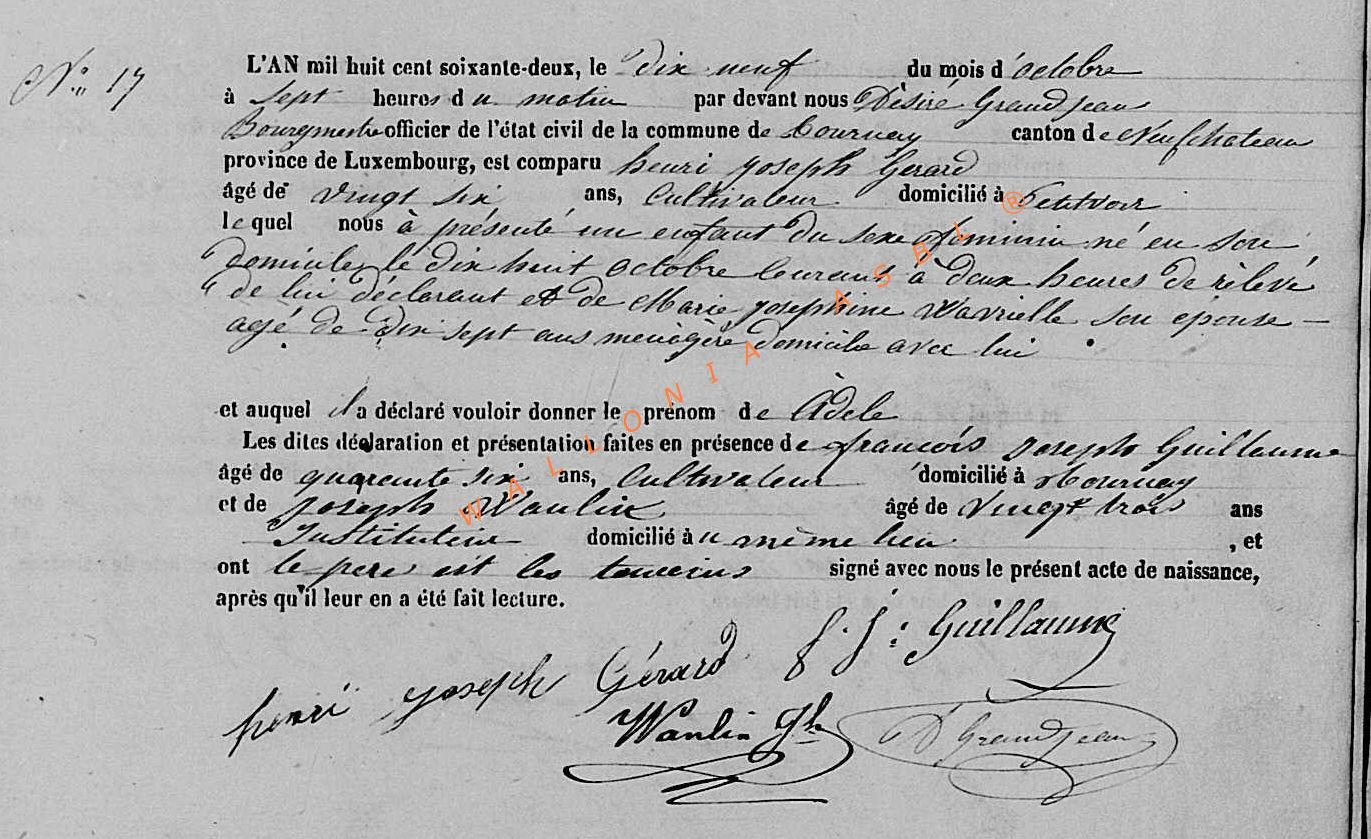 N° 17
L'AN mil huit cent soixante-deux, le dix neuf du mois d'octobre
à sept heures du matin par devant nous Désiré Grandjean
Bourgmestre officier de l'état civil de la commune de Tournay canton de Neufchateau
province de Luxembourg, est comparu henri joseph Gerard
âgé de vingt six ans, Cultivateur domicilié à Petitvoir
le quel nous à présenté un enfant du sexe feminin né en son
domicile, le dix huit octobre Courant à deux heures de relevé
de lui déclarant et de Marie josephine Wavrielle son épouse
agé de dix sept ans menagère domicile avec lui
et auquel il a déclaré vouloir donner le prénom de Adele
Les dites déclaration et présentation faites en présence de francois Joseph Guillaume
âgé de quarante six ans, Cultivateur domicilié à Tournay
et de joseph Wanlin âgé de vingt trois ans
Instituteur domicilié à u même lieu , et
ont le pere est les temoins signé avec nous le présent acte de naissance,
après qu'il leur en a été fait lecture.
henri joseph Gérard f. j: Guillaume
Wanlin Jh D Grandjean
WALLONIA ASBL ®